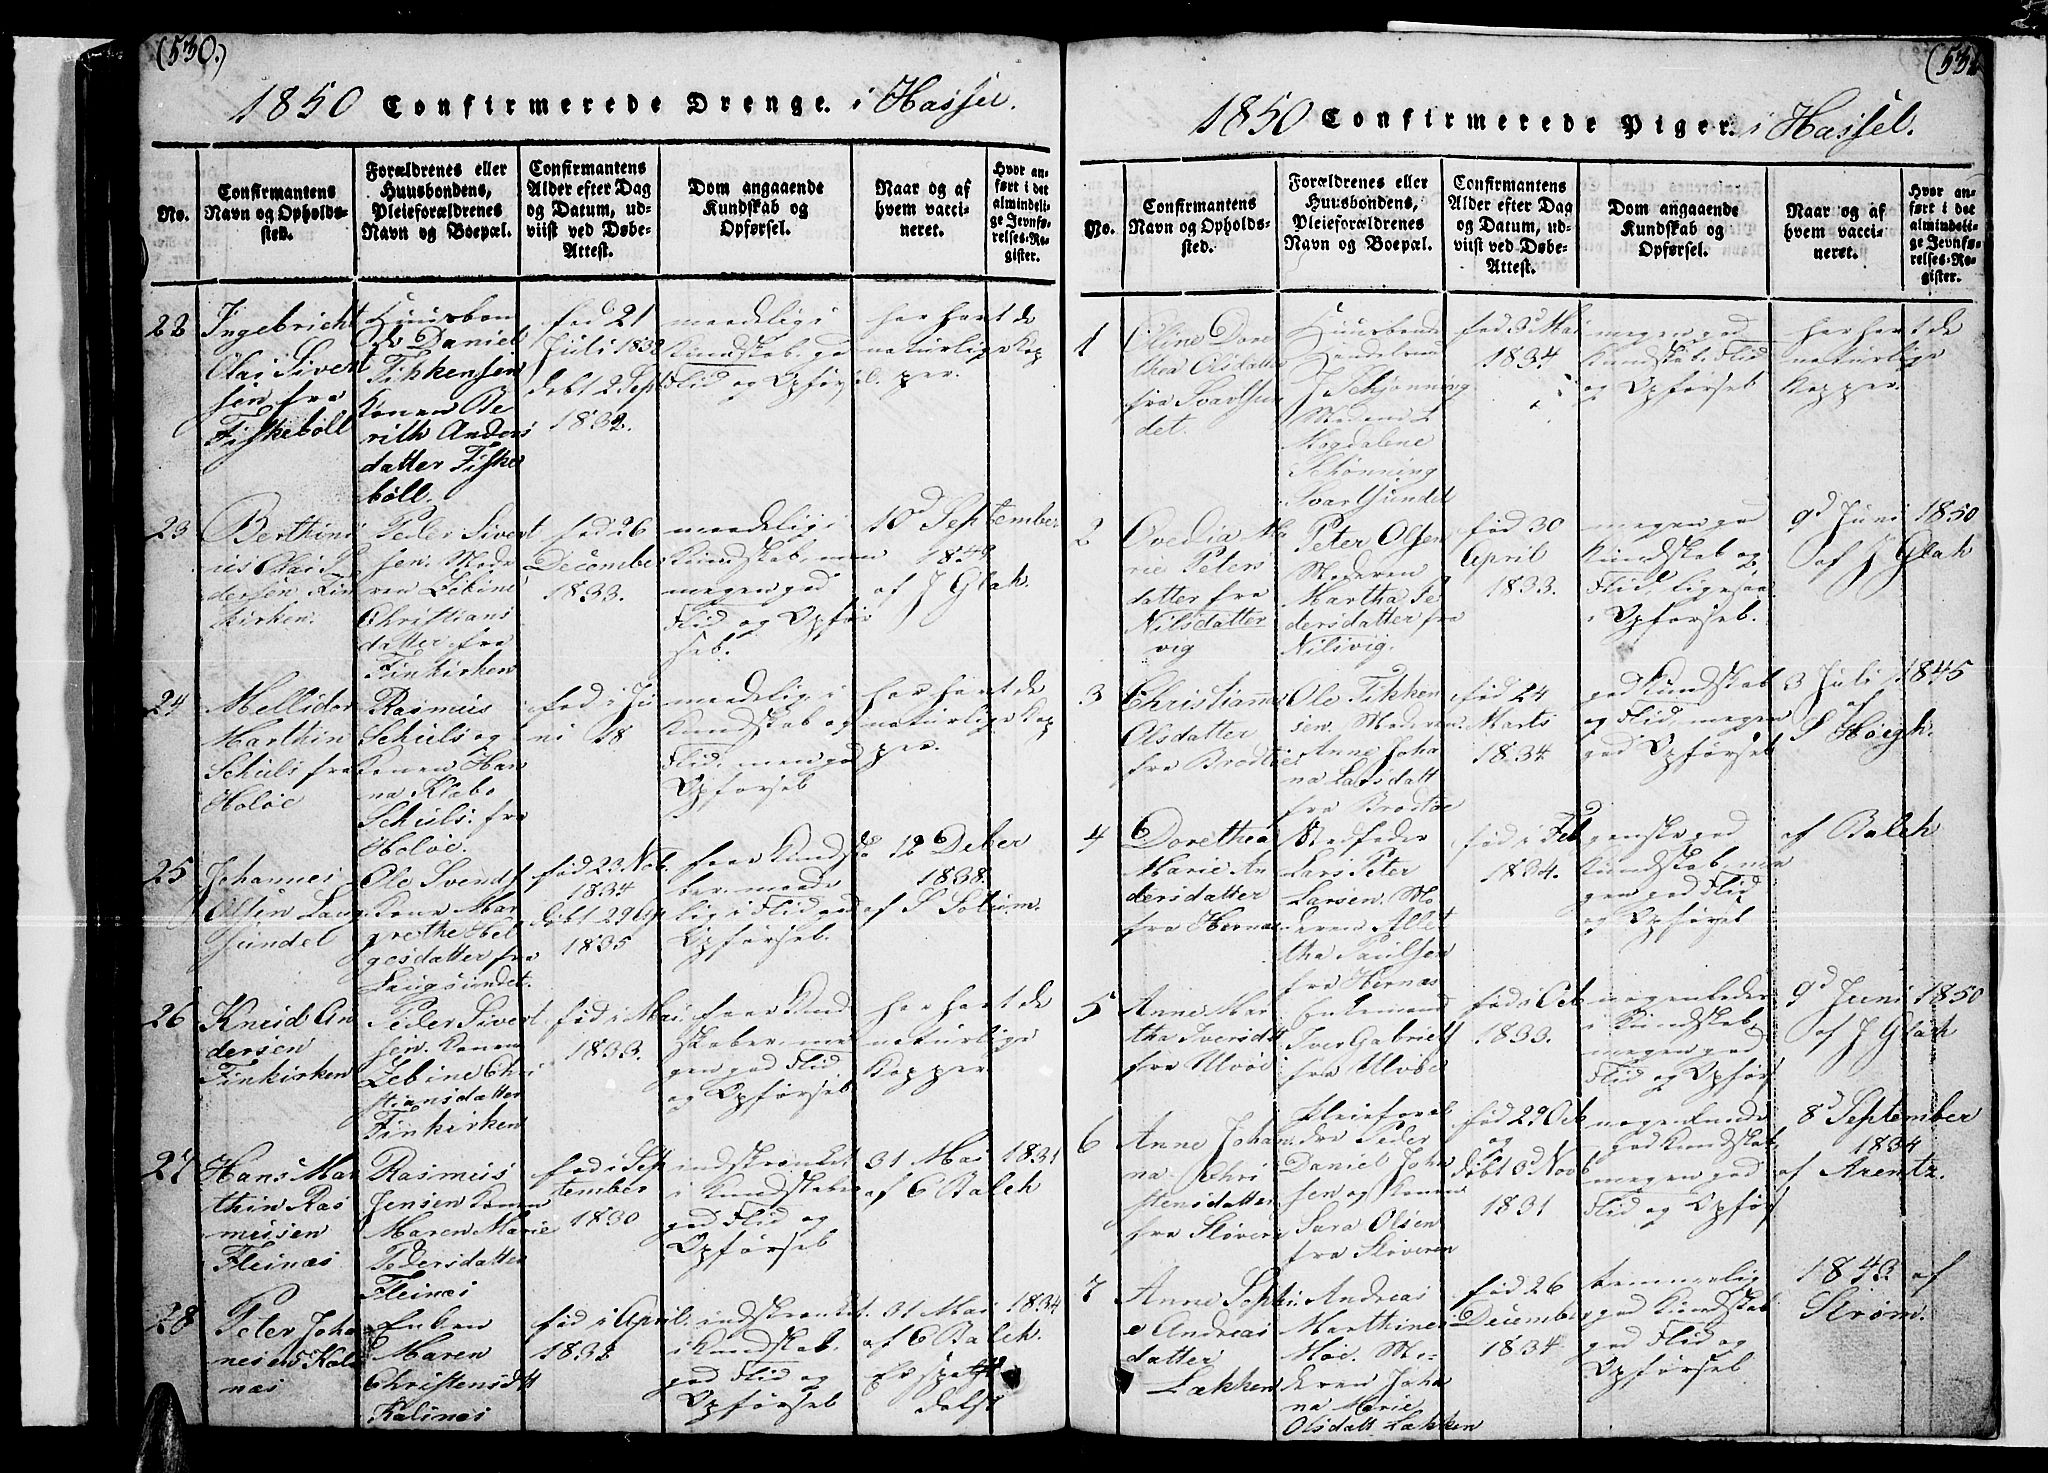 (530.)
1850 Confirmerede Drenge. i Hassel.
No.
Confirmantens
Navn og Opholds-
sted.
Forældrenes eller
Huusbondens,
Pleieforældrenes
Navn og Boepæl.
Confirmantens
Alder efter Dag
og Datum, ud-
viist ved Døbe-
Attest.
Dom angaaende
Kundskab og
Opførsel.
Naar og af
hvem vacci-
neret.
Hvor an-
ført i det
almindeli-
ge Jevnfø-
relses-Re-
gister.
22
Ingebricht
Olai Sivert
sen fra
Fiskebøll
Huusbon
de Daniel
Tikkensen
Konen Be
rith Anders
datter Fiske
bøll.
fød 21
Juli 1832
døbt 2 Sept
1832.
maadelig i
Kundskab, god
Flid og Opførsel.
har havt de
naturlige Kop
per.
23
Peder Sivert
sen. Mode
ren Zebine
Christians
datter fra
Finkirken
fød 26
December
1833.
maadelig i
Kundskab, men
megen god
Flid og Opfør
sel.
10d September
af J Glak.
24
Mellidor
Marthin
Schuls fra
Holøe
Rasmus
Schuls og
Konen Han
na Klæbo
Schuls. fra
Holøe.
fød i Ju
ni 18
maadelig i
Kundskab og
Flid, men god
Opførsel
har havt de
naturlige Kop
per.
25
Johannes
Olsen Laug
sundet
Ole Svends
Kone Mar
grethe Hel
gesdatter fra
Laugsundet.
fød 23 Nob.
1834
1835
lig i Flid, god
Opførsel.
12 Decber
1838.
af S Solum.
26
Knud An
dersen
Finkirken
Peder Sivert
sen. Konen
Zebine Chri
stiansdatter
Finkirken
fød i Mai
1833.
gen god Flid
og Opførsel
har havt de
naturlige
Kopper
27
Hans Mar
thin Ras
mussen
Fleinæs
Rasmus
Jensen Konen
Maren Marie
Pedersdatter
Fleinæs
fød i Sep
tember
1830
indskrænket
i Kundskaber
god Flid og
Opførsel
31 Mai 1831
af C Balch
28
Peter Joha
nesen Kal
næs
Enken
Maren
Christensdtt
Kalinæs
fød i April
indskrænket
i Kundskab.
god Flid og
Opførsel
31 Mai 1834
af C Balch
1850 Confirmerede Piger. i Hassel.
No.
Confirmantens
Navn og Opholds-
sted.
Forældrenes eller
Huusbondens,
Pleieforældrenes
Navn og Boepæl.
Confirmantens
Alder efter Dag
og Datum, ud-
viist ved Døbe-
Attest.
Dom angaaende
Kundskab og
Opførsel.
Naar og af
hvem vacci-
neret.
Hvor an-
ført i det
almindeli-
ge Jevnfø-
relses-Re-
gister.
1
Oline Doro
thea Olsdatter
fra Svartsun
det.
Magdalene
Schønning
Svartsundet
fød 3d Mai
1834
megen god
Kundskab, Flid
og Opførsel
har havt de
naturlige
Kopper.
2
Ovedia Ma
rie Peters
datter fra
Nilsdatter
vig
Peter Olsen
Moderen
Martha Pe
dersdatter fra
Nilsvig.
fød 30
April
1833.
megen god
Kundskab og
Flid, ligesaa
i Opførsel.
9d Juni 1850
af J Glak
3
Olsdatter
Ole Tikken
sen. Moderen
Anne Joha
na Larsdatt
fød 24
Marts
1834
god Kundskab
og Flid, megen
god Opførsel
3 Juli 1845
af
S Høegh.
4
Dorethea
Marie An
dersdatter
fra Hernæs
Stedfader
Lars Peter
Larsen. Mo
deren Alet
tha Paulsen
fra Hernæs
fød i Feb
1834.
ganske god
Kundskab, me
gen god Flid
og Opførsel
af Balch
5
Anne Mar
tha Iversdtt
fra Ulvøe
Enkemand
Iver Gabriels
fra Ulvøe
fød i Oct
1833.
nogenledes
i Kundskab,
megen god
Flid og Opførs
9d Juni 1850
af J Glak
6
Anne Johan
na Chri
stensdatter
Pleieforæl
dre Peder
Daniel John
sen og Konen
Sara Olsen
fød 29 Oct
og
1831
god Kundskab,
megen god
Flid og Opførs
8d September
1834
af Arentz.
7
Anne Sophi
e Andreas
datter
Løkken
Andreas
Marthines
Moe. Mo-
deren Joha
na Marie
Olsdatt Løkken
fød 26
December
1834
temmelig
god Kundskab
god Flid og
Opførsel.
1843 af
Strøm.